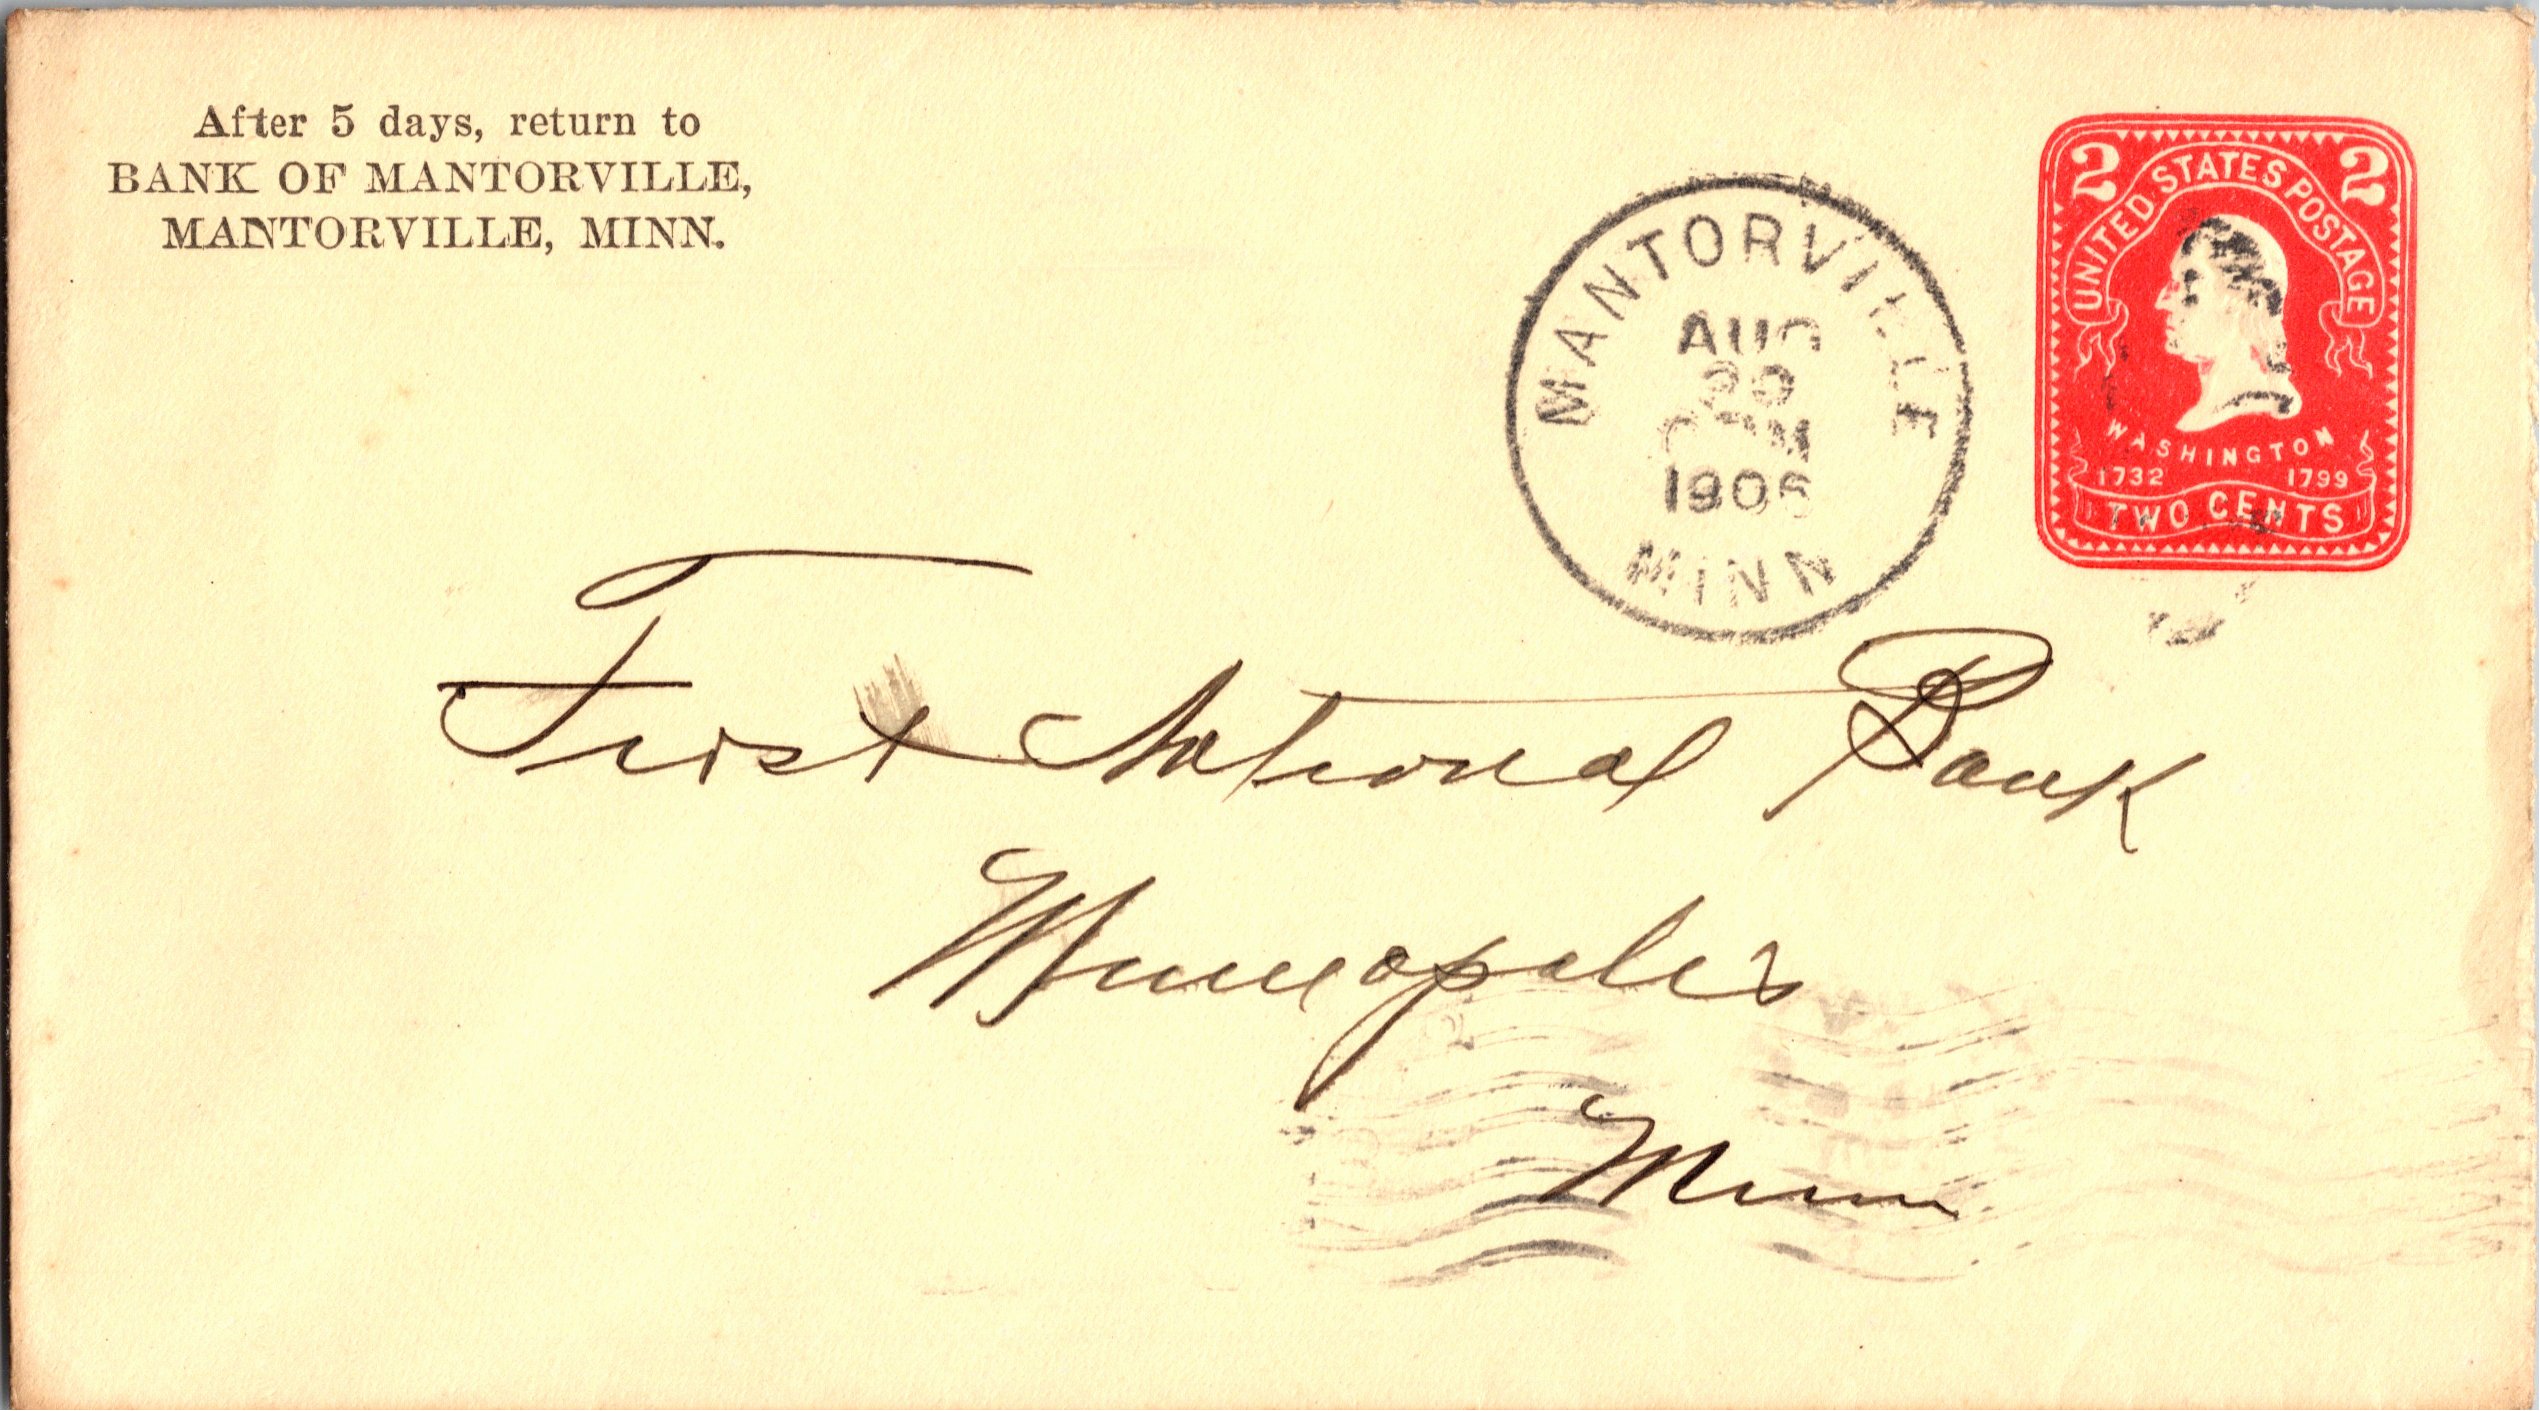 After 5 days, return to
BANK OF MANTORVILLE,
MANTORVILLE, MINN.
MANTORVILLE
AUG
1906
MINN
2 2
UNITED STATES POSTAGE
WASHINGTON
1732 1799
TWO CENTS
First National Bank
Minneapolis
Minn